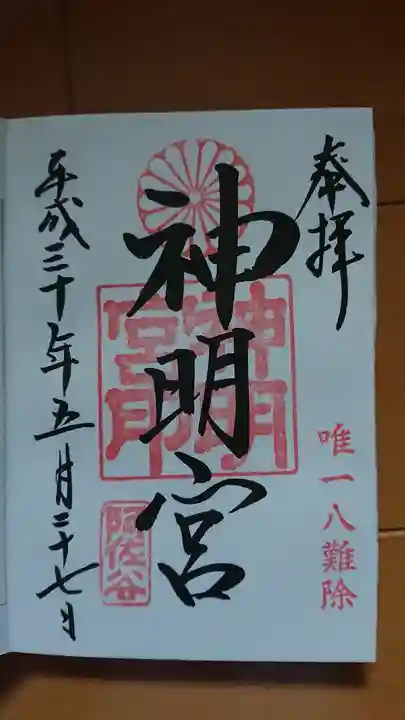 奉拝
唯一八難除
神明宮
神明宮印
阿佐谷
平成三十年五月二十七日